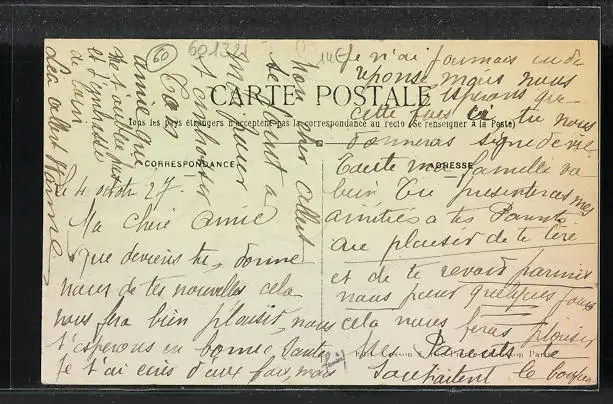 CARTE POSTALE
Tous les pays étrangers n'acceptent pas la correspondance au recto (Se renseigner à la Poste)
CORRESPONDANCE
ADRESSE
Le 4 27.
Ma chère amie
que deviens tu, donne
nous de tes nouvelles cela
nous fera bien plaisir, nous
t'esperons en bonne Sante
Je t'ai écris deux fois, mais
Je n'ai jamais eu de
réponse mais nous
esperons que
cette fois ci tu nous
donneras signe de vie
Toute ma famille va
bien Tu presenteras mes
amitiés à tes Parents
Au plaisir de te lire
et de te revoir parmi
nous pour quelques jours
cela nous feras plaisir
Mes Parents te
Souhaitent le bonjour
mon mari Albert
se joint à
moi pour
t'embrasser
601321
14€
60